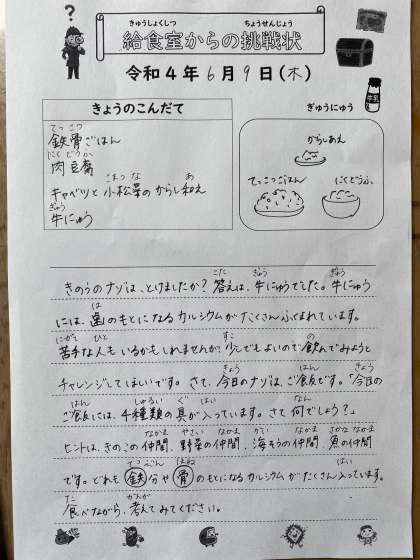 きゅうしょくしつ ちょうせんじょう
給食室からの挑戦状
令和4年6月9日(木)
きょうのこんだて
てっこつ
鉄骨ごはん
にくどうふ
肉豆腐
こまつな あ
キャベツと小松菜のからし和え
ぎゅう
牛にゅう
ぎゅうにゅう
牛乳
からしあえ
てっこつごはん
にくどうふ
こた ぎゅう ぎゅう
きのうのナゾは、とけましたか?答えは、牛にゅうでした。牛にゅう
は
には、歯のもとになるカルシウムがたくさんふくまれています。
にがて ひと すこ の
苦手な人もいるかもしれませんが、少しでもよいので飲んでみようと
きょう はん きょう
チャレンジしてほしいです。さて、今日のナゾは、ご飯です。「今日の
はん しゅるい ぐ はい なん
ご飯には、4種類の具が入っています。さて何でしょう?」
なかま やさい なかま かい なかま さかな なかま
ヒントは、きのこの仲間、野菜の仲間、海そうの仲間、魚の仲間
てつぶん ほね はい
です。どれも鉄分や骨のもとになるカルシウムがたくさん入っています。
た かんが
食べながら、考えてみてください。